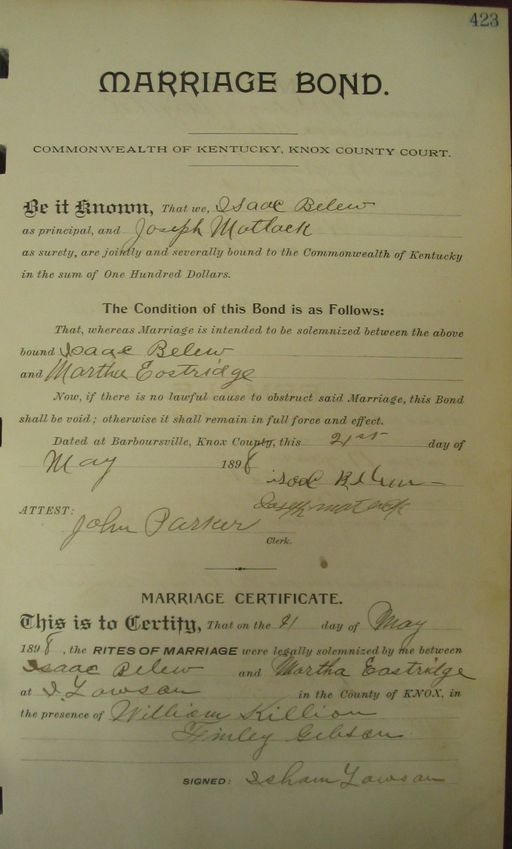 423
MARRIAGE BOND.
COMMONWEALTH OF KENTUCKY, KNOX COUNTY COURT.
Be it Known, That we, Isaac Belew
as principal, and Joseph Matlock
as surety, are jointly and severally bound to the Commonwealth of Kentucky
in the sum of One Hundred Dollars.
The Condition of this Bond is as Follows:
That, whereas Marriage is intended to be solemnized between the above
bound Isaac Belew
and Martha Eastridge
Now, if there is no lawful cause to obstruct said Marriage, this Bond
shall be void; otherwise it shall remain in full force and effect.
Dated at Barboursville, Knox County, this 21st day of
May 1898
Belew
ATTEST: Joseph Matlock
John Parker
Clerk.
MARRIAGE CERTIFICATE.
This is to Certify, That on the 21 day of May
1898, the RITES OF MARRIAGE were legally solemnized by me between
Isaac Belew and Martha Eastridge
at I. Lawson in the County of KNOX, in
the presence of William Killion
Finley Gibson
SIGNED: Isham Lawson